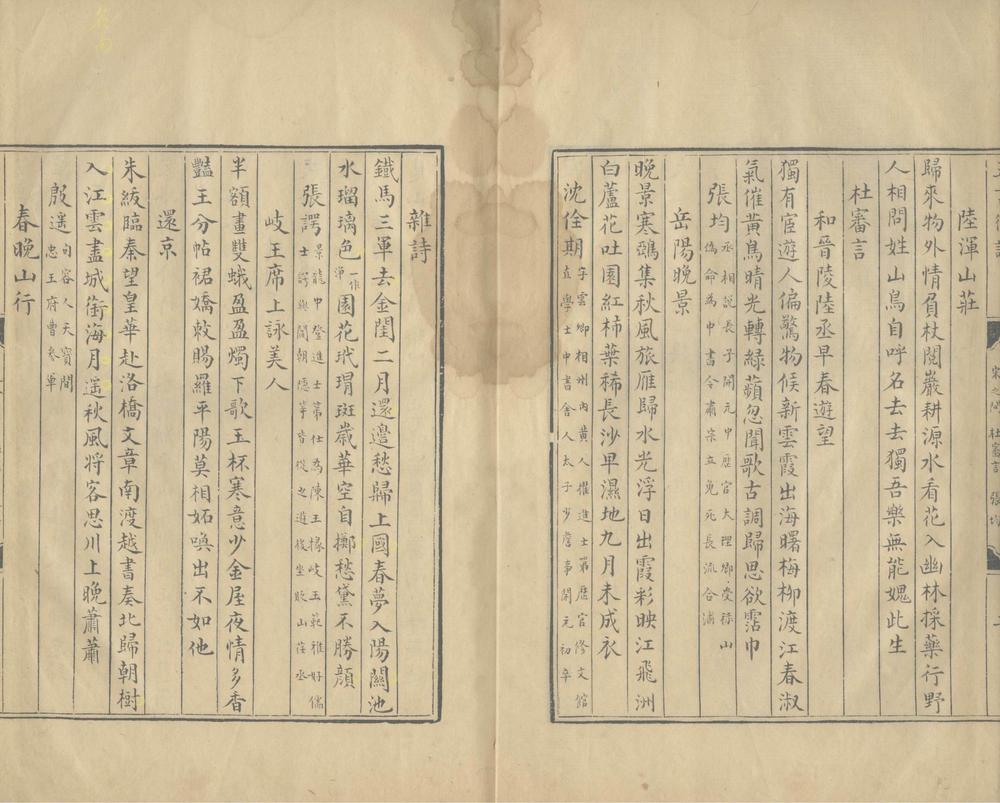 陸渾山莊
歸來物外情負杖閱巖耕源水看花入幽林採藥行野
人相問姓山鳥自呼名去去獨吾樂無能媿此生
杜審言
和晉陵陸丞早春遊望
獨有宦遊人偏驚物候新雲霞出海曙梅柳渡江春淑
氣催黃鳥晴光轉綠蘋忽聞歌古調歸思欲霑巾
張均 丞相說長子開元中歷官大理卿受祿山
偽命為中書令肅宗立免死長流合浦
岳陽晚景
晚景寒鴉集秋風旅雁歸水光浮日出霞彩映江飛洲
白蘆花吐園紅柿葉稀長沙早濕地九月未成衣
沈佺期 字雲卿相州內黃人擢進士第歷官修文館
直學士中書舍人太子少詹事開元初卒
雜詩
鐵馬三軍去金閨二月還邊愁歸上國春夢入陽關池
水瑠璃色一作淨園花玳瑁斑歲華空自擲愁黛不勝顏
張諤 景龍中登進士第仕為陳王掾岐王範雅好儒
士諤與閻朝隱等皆從之遊後坐貶山茌丞
岐王席上詠美人
半額畫雙蛾盈盈燭下歌玉杯寒意少金屋夜情多香
豔王分帖裙嬌敕賜羅平陽莫相妬喚出不如他
還京
朱紱臨秦望皇華赴洛橋文章南渡越書奏北歸朝樹
入江雲盡城銜海月遥秋風將客思川上晚蕭蕭
殷遥 句容人天寶間
忠王府曹參軍
春晚山行